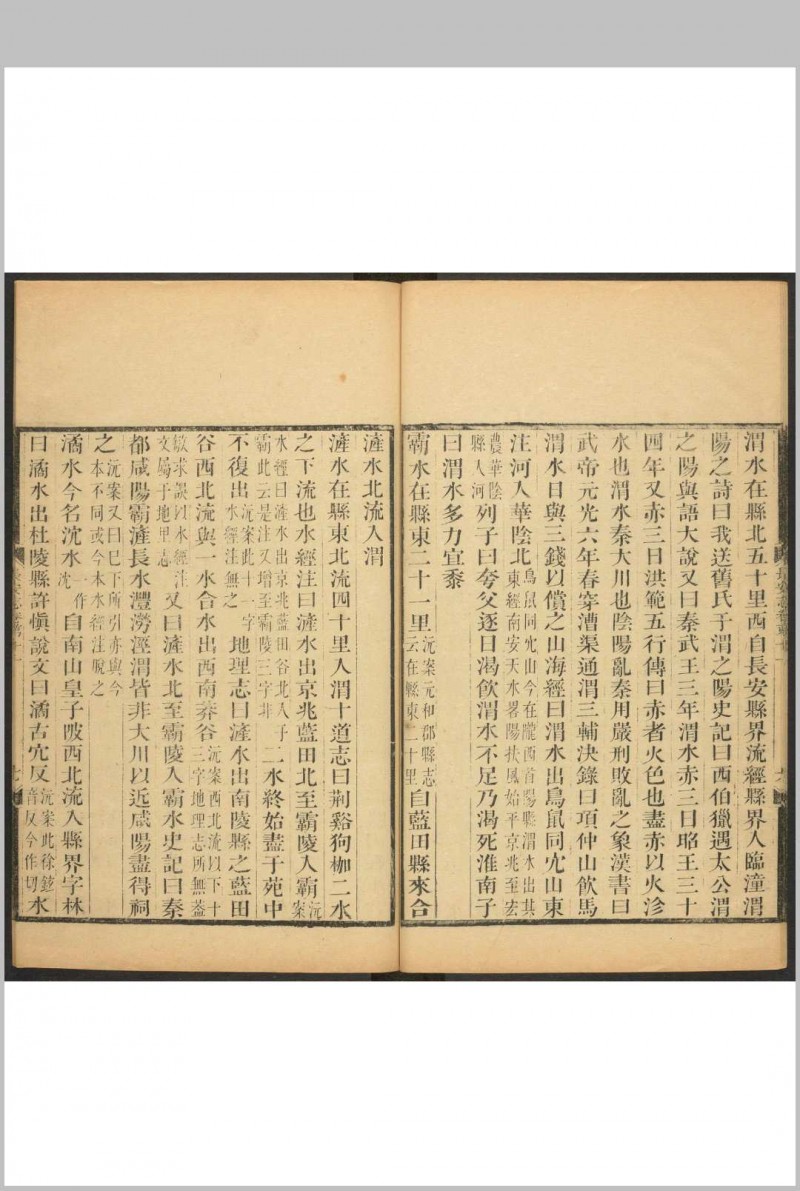 渭水在縣北五十里西自長安縣界流經縣界入臨潼渭
陽之詩曰我送舊氏子渭之陽史記曰西伯獵遇太公渭
之陽與語大說又曰秦武王三年渭水赤三日昭王三十
四年又赤三日洪範五行傳曰赤者火色也盡赤以火沴
水也渭水秦大川也陰陽亂秦用嚴刑敗亂之象漢書曰
武帝元光六年春穿漕渠通渭三輔決錄曰項仲山飲馬
渭水日與三錢以償之山海經曰渭水出鳥鼠同穴山東
注河入華陰北鳥鼠同穴山今在隴西首陽縣渭水出其東經南安天水畧陽扶風始平京兆至宏
農華陰縣入河列子曰夸父逐日渴飲渭水不足乃渴死淮南子
曰渭水多力宜黍
霸水在縣東二十一里沅案元和郡縣志云在縣東二十里自藍田縣來合
滻水北流入渭
滻水在縣東北流四十里入渭十道志曰荆谿狗枷二水
之下流也水經注曰滻水出京兆藍田北至霸陵入霸沅案
水經曰滻水出京兆藍田谷北入于霸此云是注又增至霸陵三字非二水終始盡于苑中
不復出沅案此十一字水經注無之地理志曰滻水出南陵縣之藍田
谷西北流與一水合水出西南莽谷沅案西北流以下十三字地理志所無葢
敏求誤以水經注文屬于地里志又曰滻水北至霸陵入霸水史記曰秦
都咸陽霸滻長水灃澇涇渭皆非大川以近咸陽盡得祠
之沅案又曰巳下所引亦與今本不同或今本水經注脫之
潏水今名沈水一作沈自南山皇子陂西北流入縣界字林
曰潏水出杜陵縣許愼說文曰潏古穴反沅案此徐鉉音反今作切水